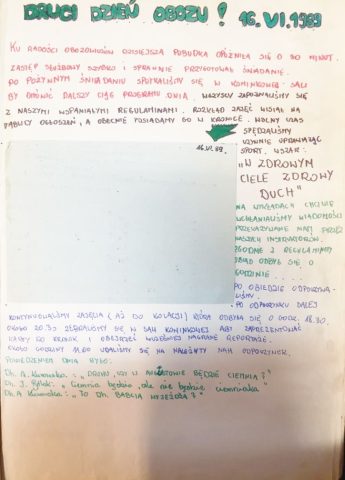 DRUGI DZIEŃ OBOZU! 16.VI.1989
KU RADOŚCI OBOZOWICÓW DZISIEJSZA POBUDKA OPÓŹNIŁA SIĘ O 30 MINUT.
ZASTĘP SŁUŻBOWY SZYBKO I SPRAWNIE PRZYGOTOWAŁ ŚNIADANIE.
PO POŻYWNYM ŚNIADANIU SPOTKALIŚMY SIĘ W KOMINKOWEJ SALI
BY OMÓWIĆ DALSZY CIĄG PROGRAMU DNIA. WSZYSCY ZAPOZNALIŚMY SIĘ
Z NASZYMI WSPANIAŁYMI REGULAMINAMI. ROZKŁAD ZAJĘĆ WISIAŁ NA
TABLICY OGŁOSZEŃ, A OBECNIE POSIADAMY GO W KRONICE. WOLNY CZAS
16.VI.89.
SPĘDZALIŚMY
CZYNNIE UPRAWIAJĄC
SPORT. WSZAK:
"W ZDROWYM
CIELE ZDROWY
DUCH"
NA WYKŁADACH CHCIWIE
WCHŁANIALIŚMY WIADOMOŚCI
PRZEKAZYWANE NAM PRZEZ
NASZYCH INSTRUKTORÓW.
ZGODNIE Z REGULAMINEM
OBIAD ODBYŁ SIĘ O
GODZINIE
PO OBIEDZIE ODPOCZYWA-
LIŚMY.
PO ODPOCZYNKU DALEJ
KONTYNUOWALIŚMY ZAJĘCIA (AŻ DO KOLACJI) KTÓRA ODBYŁA SIĘ O GODZ. 18.30.
OKOŁO 20.30 ZEBRALIŚMY SIĘ W SALI KOMINKOWEJ ABY ZAPREZENTOWAĆ
I OBEJRZEĆ NAGRANE REPORTAŻE.
OKOŁO GODZINY UDALIŚMY SIĘ NA NALEŻNY NAM ODPOCZYNEK.
POWIEDZENIEM DNIA BYŁO:
Dh. A. : "DRUHU, CZY W BĘDZIE CIEMNIA?"
Dh. J. : "Ciemnia będzie, ale nie będzie ciemniaka"
Dh. A. : "TO DH. BABCIA WYJEŻDŻA?"